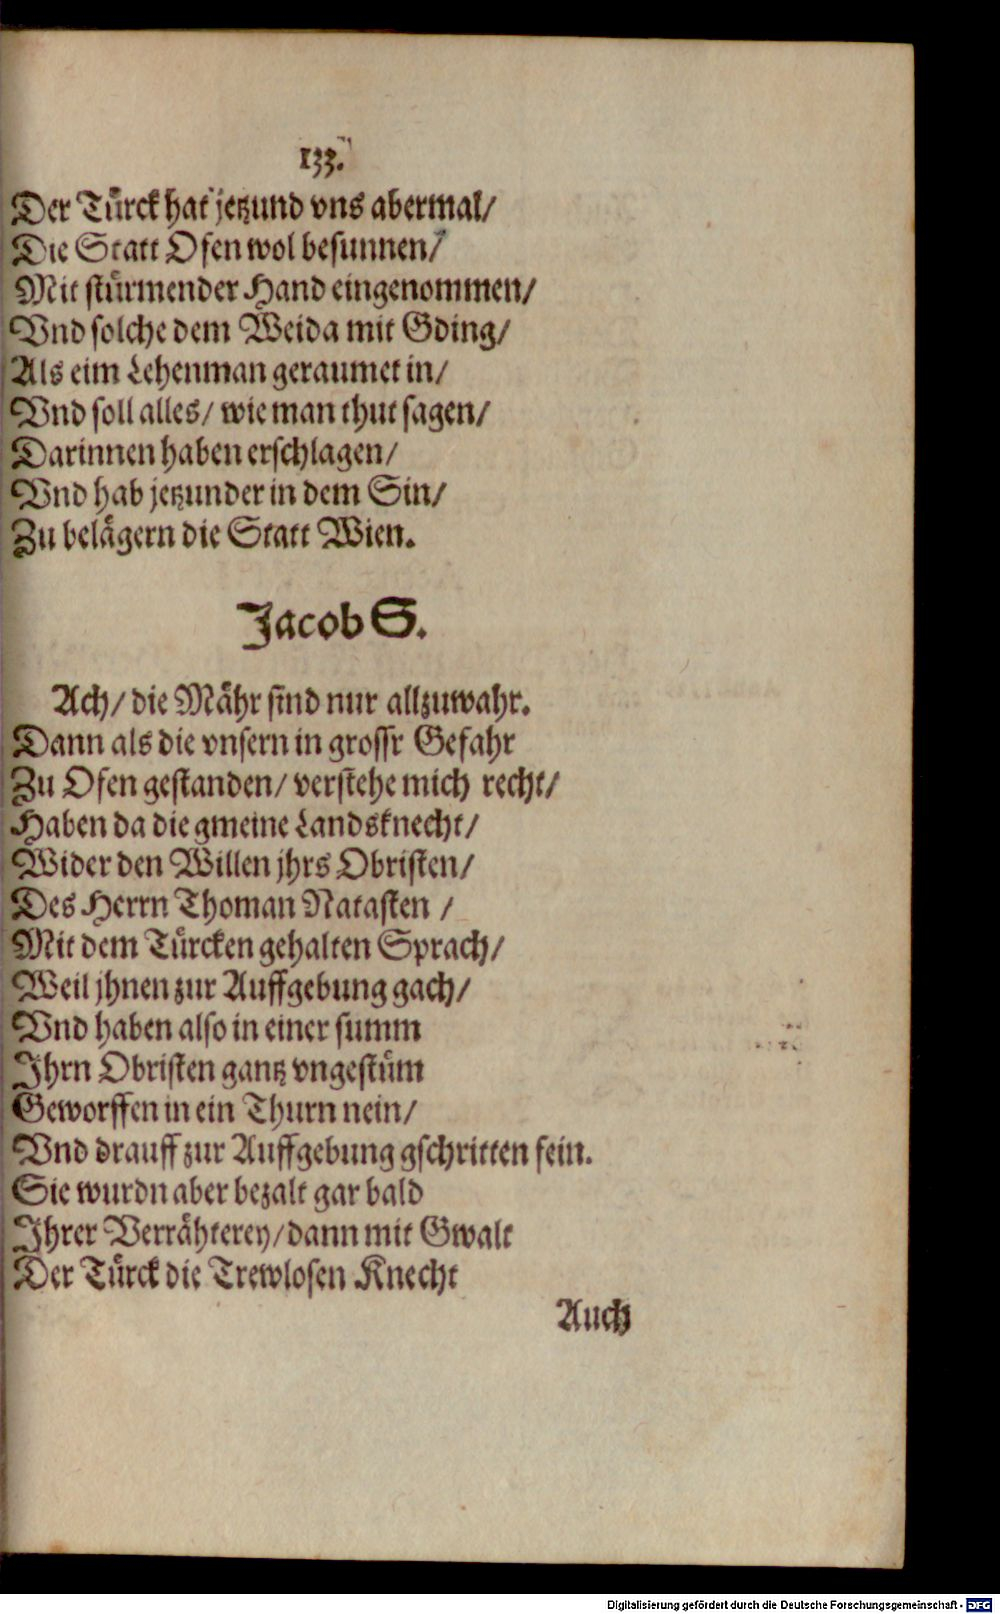 133.
Der Türck hat jetzund vns abermal/
Die Statt Ofen wol besunnen/
Mit stürmender Hand eingenommen/
Vnd solche dem Weida mit Gding/
Als eim Lehenman geraumet in/
Vnd soll alles/ wie man thut sagen/
Darinnen haben erschlagen/
Vnd hab jetzunder in dem Sin/
Zu belägern die Statt Wien.
Jacob S.
Ach/ die Mähr sind nur allzuwahr.
Dann als die vnsern in grossr Gefahr
Zu Ofen gestanden/ verstehe mich recht/
Haben da die gmeine Landsknecht/
Wider den Willen jhrs Obristen/
Des Herrn Thoman Natasten /
Mit dem Türcken gehalten Sprach/
Weil jhnen zur Auffgebung gach/
Vnd haben also in einer summ
Ihrn Obristen gantz vngestüm
Geworffen in ein Thurn nein/
Vnd drauff zur Auffgebung gschritten fein.
Sie wurdn aber bezalt gar bald
Ihrer Verrähterey/ dann mit Gwalt
Der Türck die Trewlosen Knecht
Auch
Digitalisierung gefördert durch die Deutsche Forschungsgemeinschaft - DFG